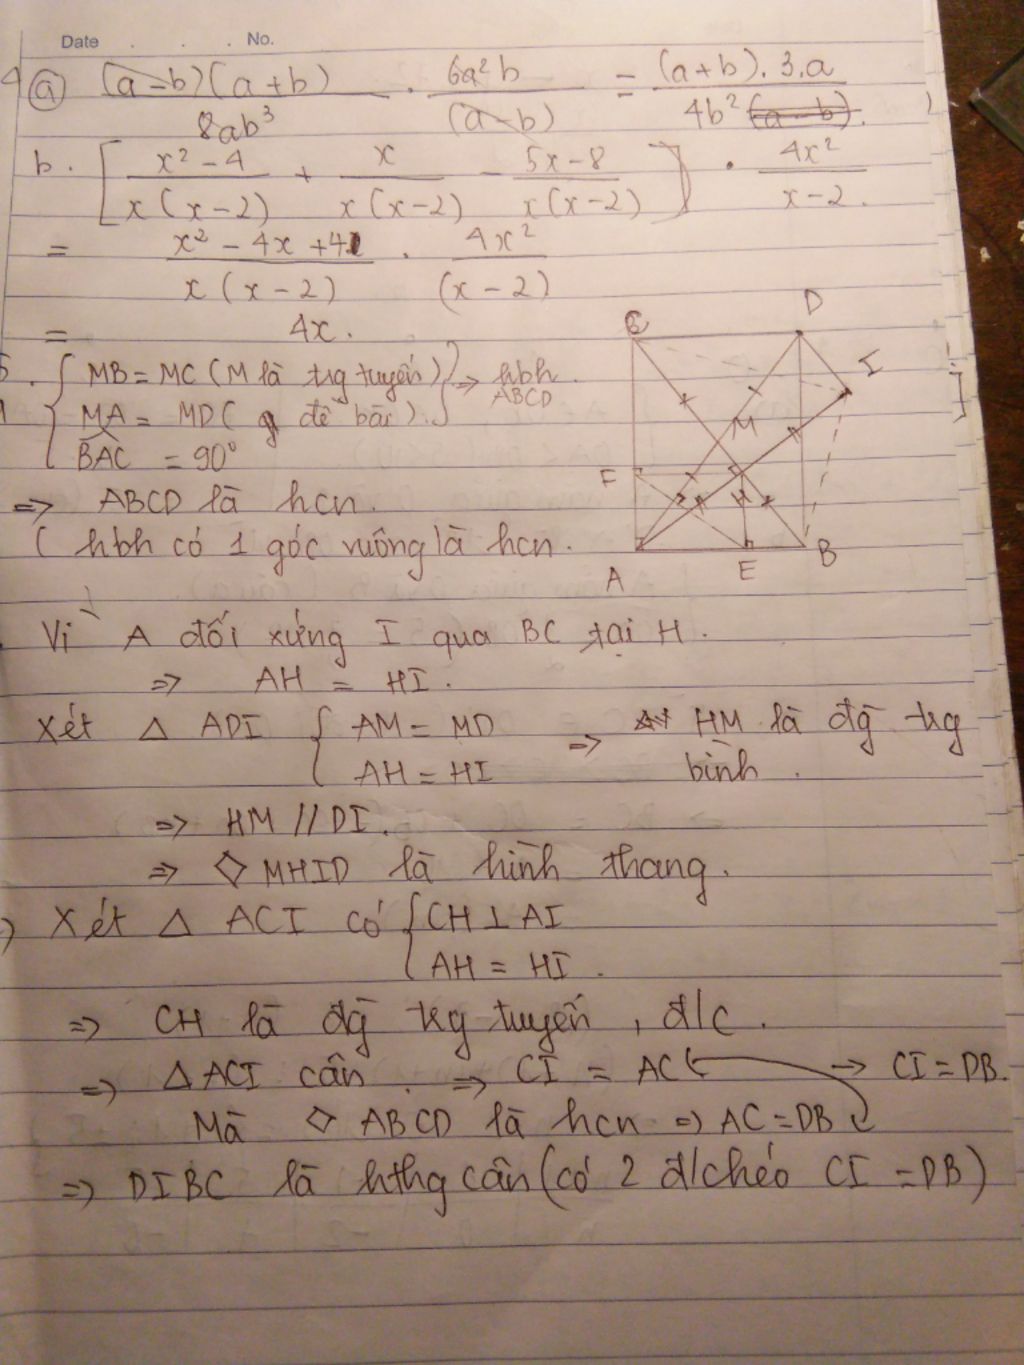 Date . . . No.
4 a) \frac{(a-b)(a+b)}{8ab^3} . \frac{6a^2b}{(a-b)} = \frac{(a+b).3.a}{4b^2}
b. [\frac{x^2-4}{x(x-2)} + \frac{x}{x(x-2)} - \frac{5x-8}{x(x-2)}] . \frac{4x^2}{x-2}.
= \frac{x^2-4x+4}{x(x-2)} . \frac{4x^2}{(x-2)}
= 4x.
5. { MB = MC (M là trg tuyến) } => hbh ABCD
MA = MD ( đề bài).
BAC = 90°
=> ABCD là hcn.
( hbh có 1 góc vuông là hcn.
C D I M F H A E B
Vì A đối xứng I qua BC tại H.
=> AH = HI.
Xét △ ADI { AM = MD => HM là đg trg
AH = HI bình.
=> HM // DI.
=> ◇ MHID là hình thang.
) Xét △ ACI có { CH ⊥ AI
AH = HI.
=> CH là đg trg tuyến, đ/c.
=> △ ACI cân. => CI = AC → CI = DB.
Mà ◇ ABCD là hcn => AC = DB
=> DIBC là hthg cân (có 2 đ/chéo CI = DB)